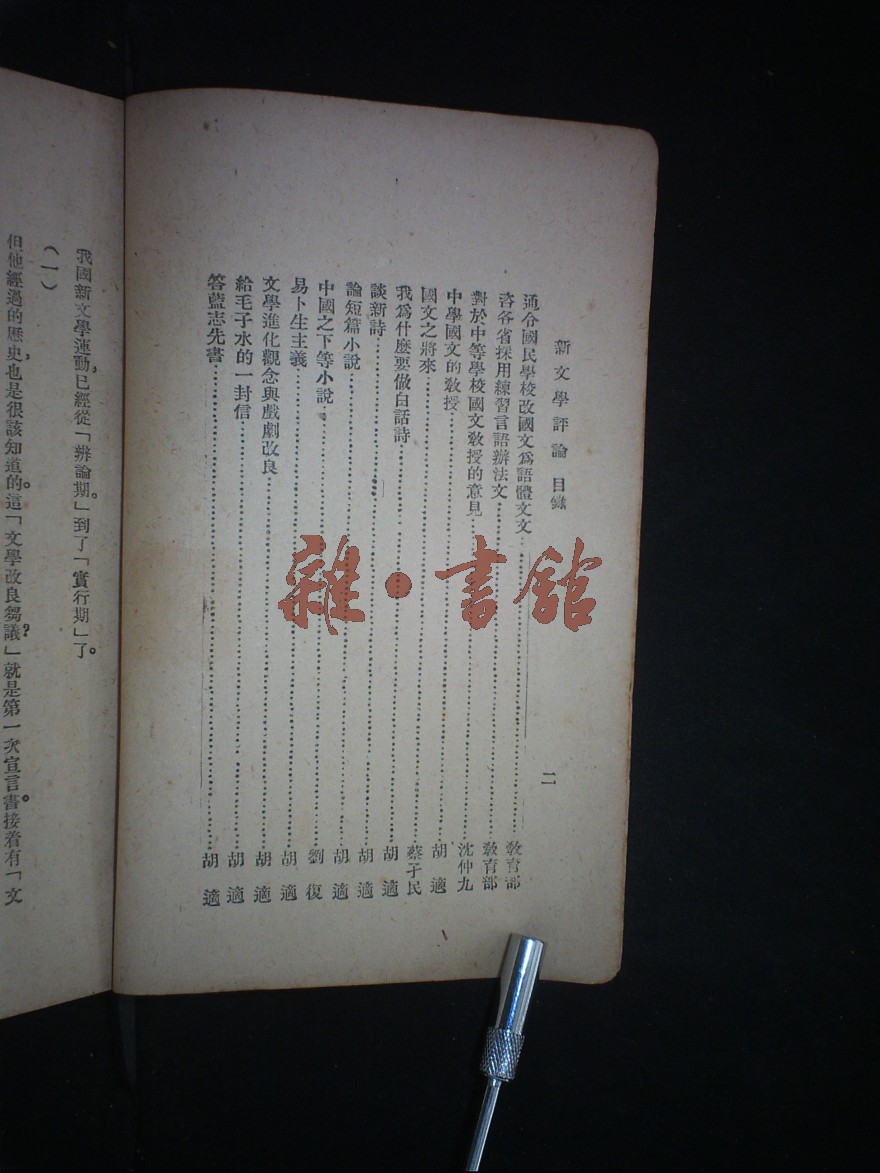 新文學評論 目錄 二
通令國民學校改國文爲語體文文……教育部
咨各省採用練習言語辦法文……教育部
對於中等學校國文敎授的意見……沈仲九
中學國文的敎授……胡適
國文之將來……蔡孑民
我爲什麽要做白話詩……胡適
談新詩……胡適
論短篇小說……胡適
中國之下等小說……劉復
易卜生主義……胡適
文學進化觀念與戲劇改良……胡適
給毛子水的一封信……胡適
答藍志先書……胡適
我國新文學運動，已經從「辨論期」到了「實行期」了。
(一)
但他經過的歷史，也是很該知道的。這「文學改良芻議」就是第一次宣言書。接着有「文
雜·書館